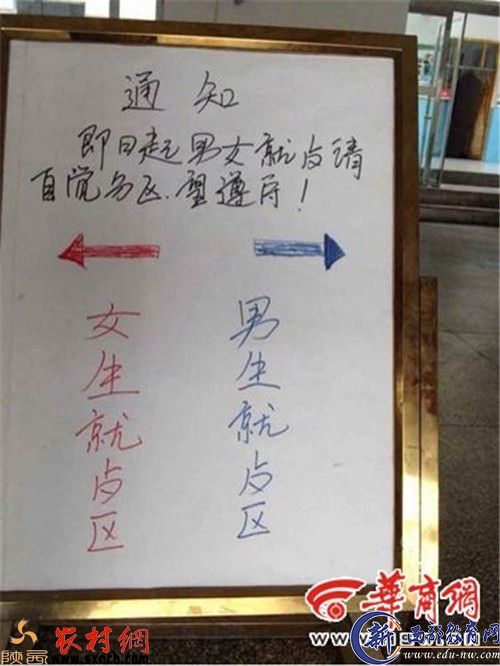 通知
即日起男女就歺请
自觉分区.望遵守！
女生就歺区
男生就歺区
華商網
陕西
农村網
新 西部教育网
www.edu-nw.com